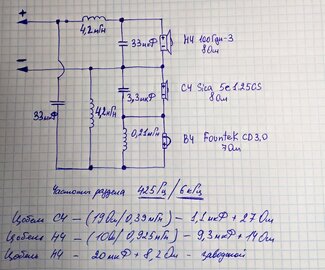 +
4,2мГн
33мкФ
НЧ 100Гдн-3
8Ом
−
33мкФ
4,2мГн
3,3мкФ
СЧ Sica 5e1.25CS
8Ом
0,21мГн
ВЧ Fountek CD3.0
7Ом
Частоты раздела 425Гц / 6кГц
Цобель СЧ – (19Ом/0,39мГн) – 1,1мкФ + 27Ом
Цобель НЧ – (10Ом/0,925мГн) – 9,3мкФ + 14Ом
Цобель НЧ – 20мкФ + 8,2Ом – заводской